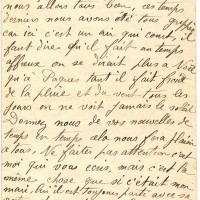 nous allons tous bien, ces temps
derniers nous avons été tous grippés
car ici c'est un air qui court, il
faut dire qu'il fait un temps
affreux on se dirait plus a Noël
qu'à Pâques tant il fait froid
de la pluie et du vent tous les
jours on ne voit jamais le soleil
Donnez nous de vos nouvelles de
temps en temps cela nous fera plaisir
a tous. Ne faites pas attention c'est
moi qui vous ecris, mais c'est la
même chose que si c'était mon
mari, lui il est toujours parti avec sa